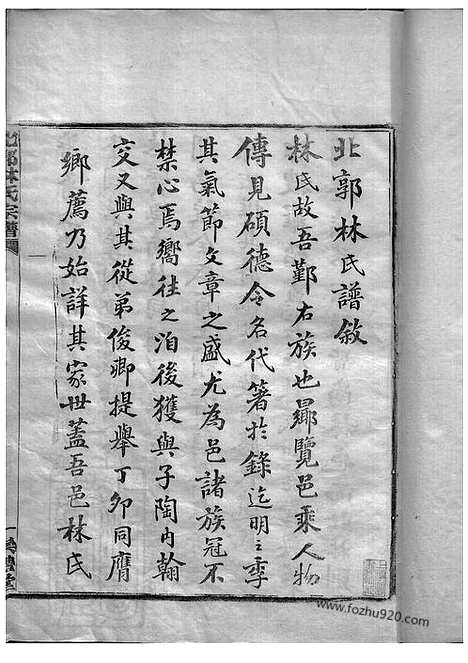 北郭林氏譜敘
林氏故吾鄞右族也曏覽邑乘人物
傳見碩德令名代箸於錄迄明之季
其氣節文章之盛尤為邑諸族冠不
禁心焉嚮往之洎後獲與子陶内翰
交又與其從弟俊卿提舉丁卯同膺
鄉薦乃始詳其家世蓋吾邑林氏
北郭林氏宗譜
www.fozhu920.com